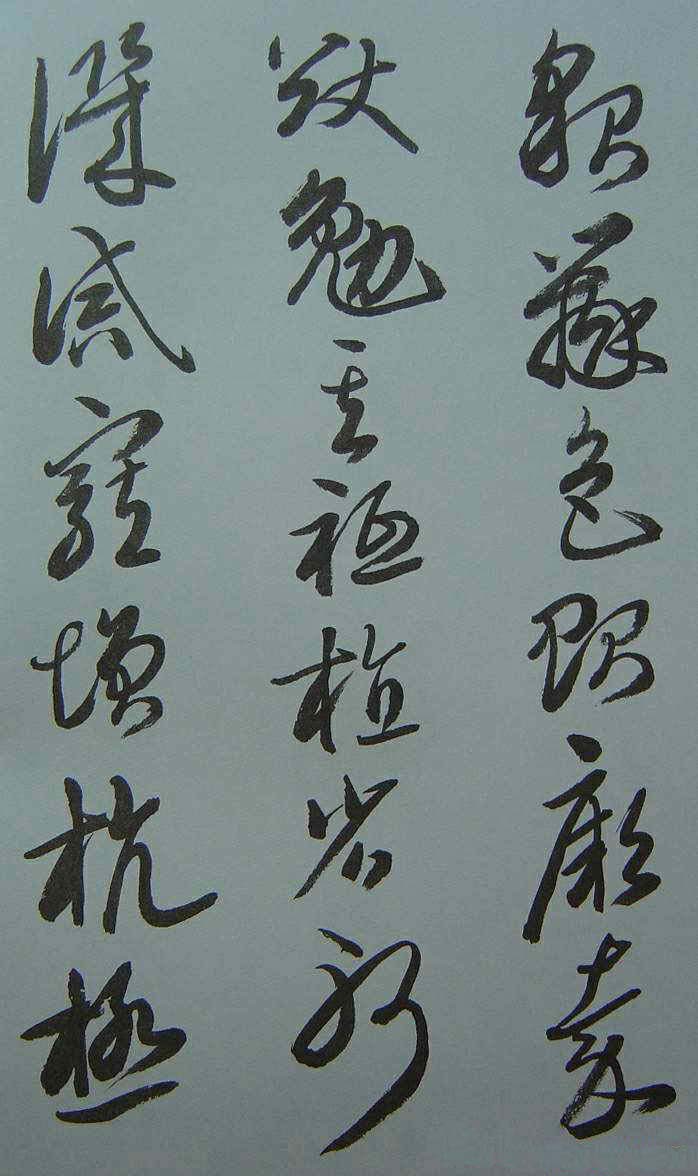 貌辨色貽厥嘉
猷勉其祗植省躬
譏誡寵增抗極